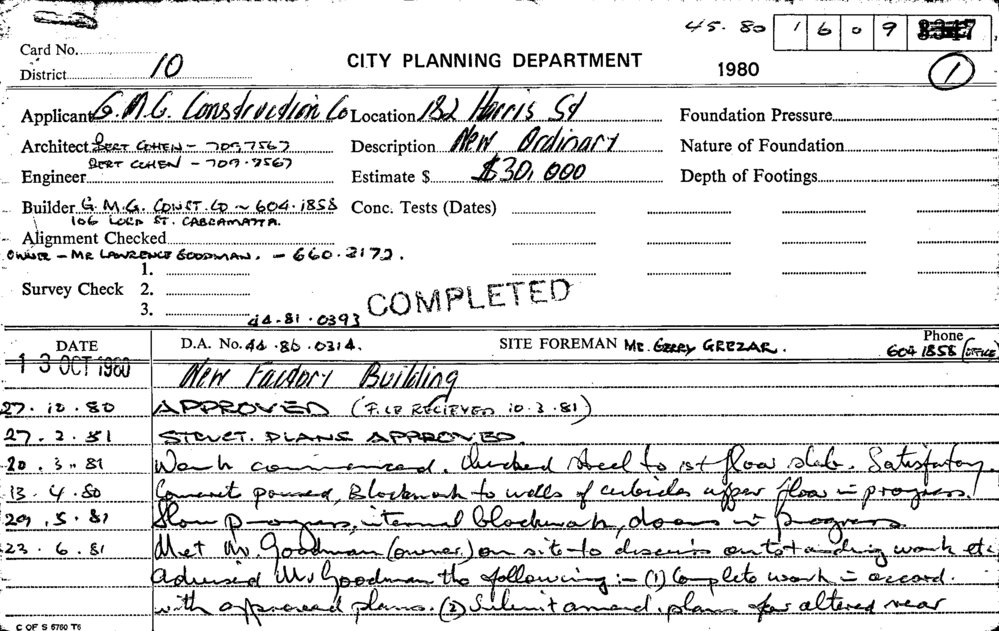 45. 80 1 6 0 9
Card No.
District 10 CITY PLANNING DEPARTMENT 1980 1
Applicant G.M.G. Construction Co Location 182 Harris St Foundation Pressure
Architect BERT COHEN - 709 7567 Description New Ordinary Nature of Foundation
BERT COHEN - 709.7567
Engineer Estimate $ $30,000 Depth of Footings
Builder G.M.G. CONST. CO ~ 604.1858 Conc. Tests (Dates)
106 LORD ST. CABRAMATTA.
Alignment Checked
OWNER - MR LAWRENCE GOODMAN. - 660.3172.
1.
Survey Check 2.
3. COMPLETED
44-81.0393
DATE D.A. No. 44.80.0314. SITE FOREMAN MR. GERRY GREZAR. Phone 604 1858 (OFFICE)
13 OCT 1980 New Factory Building
27.10.80 APPROVED (FILE RECIEVED 10.3.81)
27.2.81 STRUCT. PLANS APPROVED.
20.3.81 Work commenced. Checked steel to 1st floor slab. Satisfactory.
13.4.80 Concrete poured, Blockwork to walls of cubicles upper floor in progress.
29.5.81 Slow progress, internal blockwork, doors in progress
23.6.81 Met Mr. Goodman (owner) on site to discuss outstanding work etc
Advised Mr Goodman the following:- (1) Complete work in accord.
with approved plans. (2) Submit amend. plans for altered rear
C OF S 6760 T6